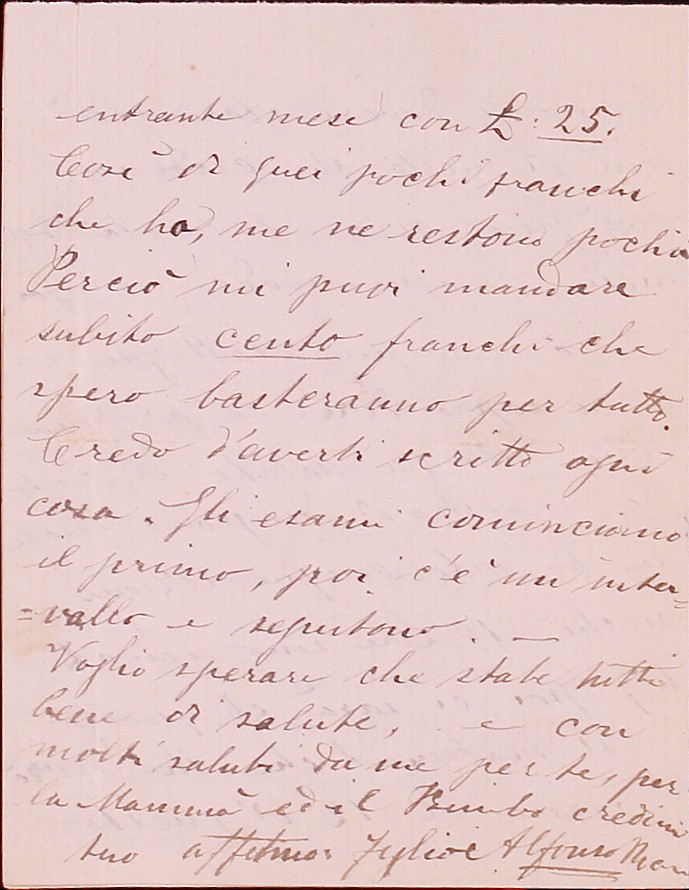 entrante mese con £: 25.
Così di quei pochi franchi
che ho, me ne restono pochi
Perciò mi puoi mandare
subito cento franchi che
spero basteranno per tutto.
Credo d'averti scritto ogni
cosa. Gli esami cominciano
il primo, poi c'è un inter=
=vallo e seguitono. —
Voglio sperare che state tutti
bene di salute, e con
molti saluti da me per te, per
la Mammà ed il Bimbo credimi
tuo affetmo: Figlio Alfonso